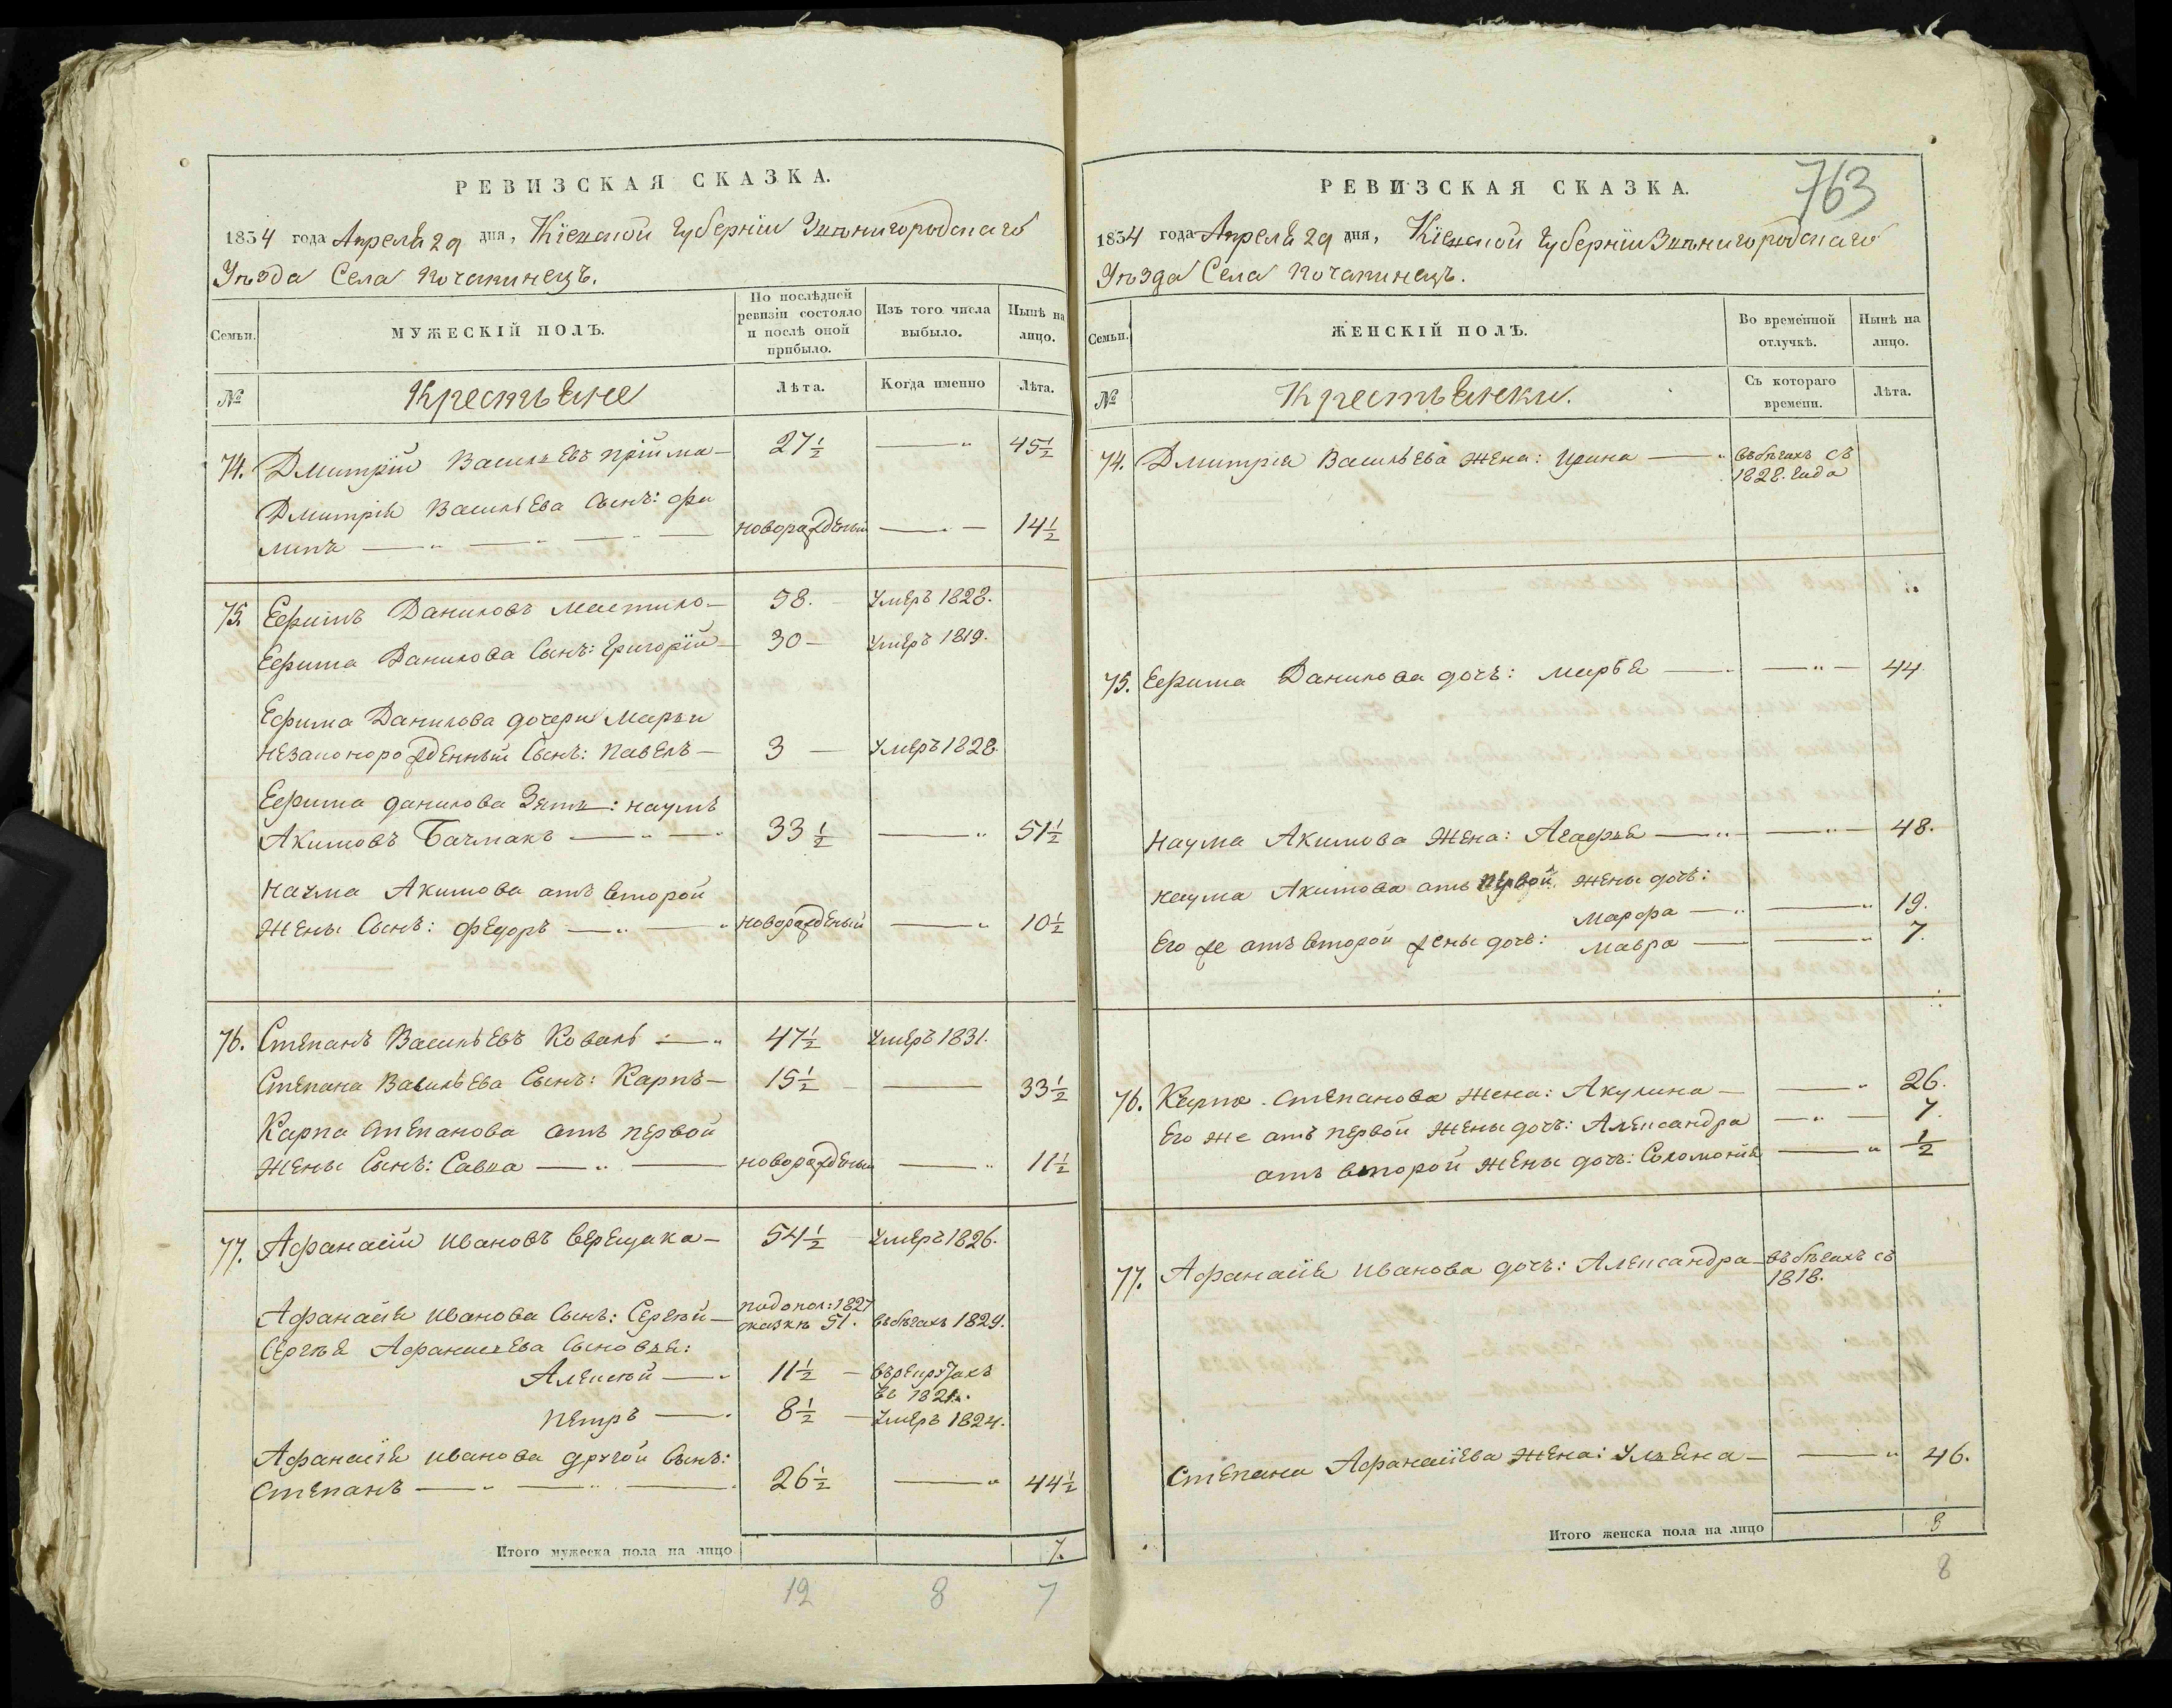 РЕВИЗСКАЯ СКАЗКА.
1834 года Апреля 29 дня, Кіевской Губерніи Звѣнигородскаго
Уѣзда Села Почапинецъ.
Семьи. МУЖЕСКІЙ ПОЛЪ. По послѣдней ревизіи состояло и послѣ оной прибыло. Изъ того числа выбыло. Нынѣ на лицо.
№ Крестьяне Лѣта. Когда именно Лѣта.
74. Дмитрій Васильевъ Прійма — 27½ — 45½
Дмитрія Васильева Сынъ: Фи
липъ — новорожденый — 14½
75. Ефимъ Даниловъ — 58. Умеръ 1828.
Ефима Данилова Сынъ: Григорій — 30 — Умеръ 1819.
Ефима Данилова дочери Марьи
незаконорожденный Сынъ: Павелъ — 3 — Умеръ 1828.
Ефима Данилова Зять: Наумъ
Акимовъ Бачмакъ — 33½ — 51½
Наума Акимова отъ второй
жены Сынъ: Федоръ — новорожденый — 10½
76. Степанъ Васильевъ Коваль — 47½ Умеръ 1831.
Степана Васильева Сынъ: Карпъ — 15½ — 33½
Карпа Степанова отъ первой
жены Сынъ: Савка — новорожденый — 11½
77. Афанасій Ивановъ Верещака — 54½ Умеръ 1826.
Афанасія Иванова Сынъ: Сергѣй — по допол: 1827 сказкѣ 51. въ бѣгахъ 1829.
Сергѣя Афанасьева Сыновья:
Алексѣй — 11½ — въ рекрутахъ
Петръ — 8½ — Умеръ 1824.
Афанасія Иванова другой Сынъ:
Степанъ — 26½ — 44½
Итого мужеска пола на лицо 7.
12 8 7
763
РЕВИЗСКАЯ СКАЗКА.
1834 года Апреля 29 дня, Кіевской Губерніи Звѣнигородскаго
Уѣзда Села Почапинецъ.
Семьи. ЖЕНСКІЙ ПОЛЪ. Во временной отлучкѣ. Нынѣ на лицо.
№ Крестьянки. Съ котораго времени. Лѣта.
74. Дмитрія Васильева жена: Ирина — въ бѣгахъ съ
1828. Года
75. Ефима Данилова дочь: Марья — 44
Наума Акимова жена: Агафья — 48.
Наума Акимова отъ первой жены дочь:
Марфа — 19.
Его же отъ второй жены дочь: Мавра — 7.
76. Карпа Степанова жена: Акулина — 26.
Его же отъ первой жены дочь: Александра — 7.
отъ второй жены дочь: Соломонія — ½
77. Афанасія Иванова дочь: Александра — въ бѣгахъ съ
1818.
Степана Афанасіева жена: Ульяна — 46.
Итого женска пола на лицо 8
8